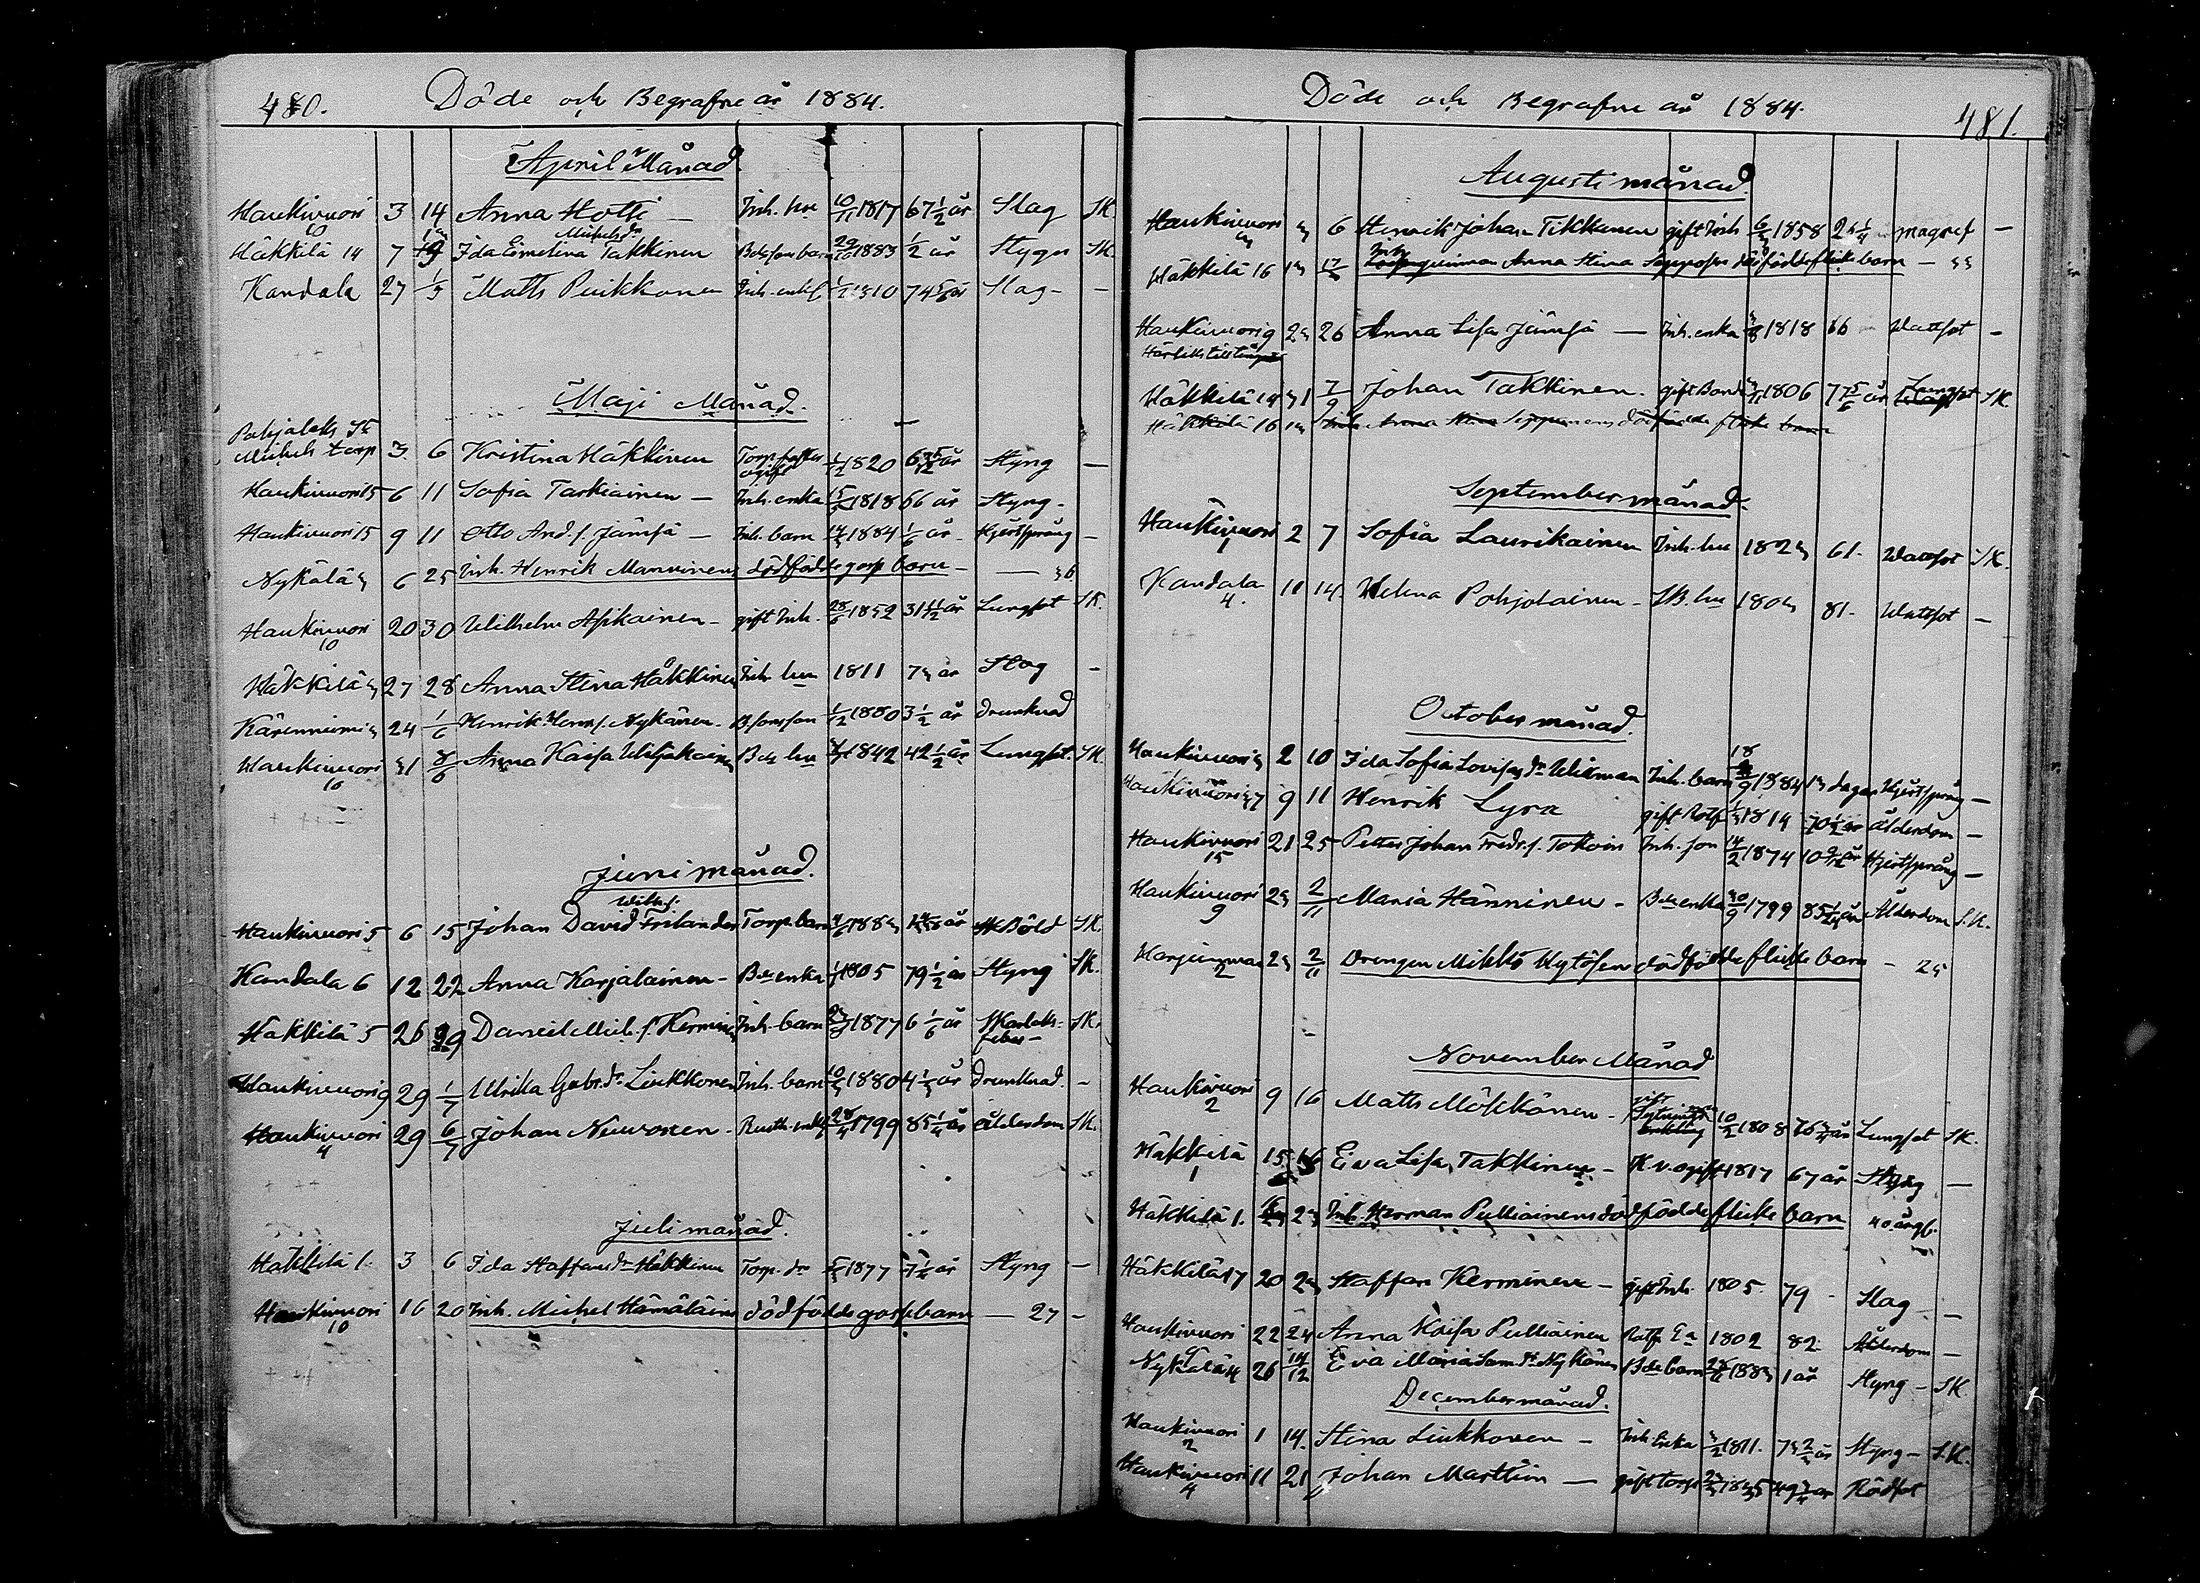 480. Döde och Begrafne år 1884.
April Månad
Haukivuori 10 3 14 Anna Hotti — Inh. hu 10/11 1817 67 1/2 år Slag SK.
Häkkilä 14 7 Ida Eimelina Michelsdr Takkinen Bdesons barn 1883 1/2 år Stygn SK.
Kandala 27 1/5 Matts Puikkonen Inh. enkl. 1810 74 år Slag - -
Maji Månad.
Pohjalaks St
Michels torp 3. 6 Kristina Häkkinen Torp. ogift 1/2 1820 Styng —
Haukivuori 15 6 11 Sofia Tarkiainen — Inh. enka 1818 66 år Styng -
Haukivuori 15 9 11 Otto And. s. Jämsä — Inh. barn 1884 1/6 år - Hjertspräng -
Nykälä 6 25 Inh. Henrik Manninens dödfödde goss barn — 36
Haukivuori 10 20 30 Wilhelm Asikainen - gift Inh. 28/6 1852 31 11/12 år Lungsot SK.
Häkkilä 27 28 Anna Stina Häkkinen Inh. hu 1811 73 år Slag -
Kärenniemi 24 1/6 Henrik Henr. s. Nykänen - B. sonson 1/12 1880 3 1/2 år drunknad
Haukivuori 10 31 8/6 Anna Kaisa Wiljakainen Bde hu 1842 42 1/2 år Lungsot. SK.
Juni månad.
Haukivuori 5 6 15 Johan David Wilh. s. Frilander Torp. barn 1883 år Böld SK.
Kandala 6 12 22 Anna Karjalainen - Bde enka 1805 79 1/2 år Styng SK.
Häkkilä 5 26 29 Daniel Mich. s. Kerminen Inh. barn 1877 6 1/6 år Skarlaksfeber - SK.
Haukivuori 9 29 1/7 Ulrika Gabr. dr Liukkonen Inh. barn 1880 4 år drunknad. -
Haukivuori 4 29 6/7 Johan Nuuronen - Rusth. enkl 1799 85 1/4 år ålderdom SK.
Juli månad.
Häkkilä 1. 3 6 Ida Staffansdr Häkkinen Torp. dr 1877 år Styng —
Haukivuori 10 16 20 Inh. Michel Hämäläinens dödfödde gossbarn — 27 -
Döde och Begrafne år 1884. 481.
Augusti månad.
Haukivuori 3 3 6 Henrik Johan Tikkanen gift Inh 1858 26 1/4 magref —
Häkkilä 16 13 17/8 Inh qvinnan Anna Stina Sepposes dödfödde flicke barn — 33
Haukivuori 9 23 26 Anna Lisa Jämsä — Inh. enka 1818 66 Wattsot -
Häkkilä 14 31 7/9 Johan Takkinen. gift Bonde 1806 77 5/6 år Lungsot SK.
Häkkilä 16 13 Inh Anna Stina Seppänens dödfödde flicke barn
September månad.
Haukivuori 1 2 7 Sofia Laurikainen Inh. hu 1823 61. Wattsot SK.
Kandala 4. 11 14 Helena Pohjolainen - SB. hu 1803 81. Wattsot —
October månad.
Haukivuori 3 2 10 Ida Sofia Lovisas dr Wikman Inh. barn 18/9 1884 13 dagar Hjertspräng —
Haukivuori 37 9 11 Henrik Lyra gift Rotf 1814 70 1/2 år ålderdom —
Haukivuori 15 21 25 Petter Johan Fredr. s. Tokoin Inh. son 14/2 1874 10 år Hjertspräng —
Haukivuori 9 23 2/11 Maria Hänninen - Bde enka 30/9 1799 85 år Ålderdom S.K.
Harjunmaa 2 23 2/11 Drengen Mikko Kytösen dödfödde flicke barn - 25
November Månad
Haukivuori 2 9 16 Matts Mökkönen - gift Sytnings 10/2 1808 76 3/4 år Lungsot SK.
Häkkilä 1 15 16 Eva Lisa Takkinen - K.v. ogift 1817 67 år Styng —
Häkkilä 1. 23 Inh. Herman Pulliainens dödfödde flicke barn 40 årgl.
Häkkilä 17 20 23 Staffan Kerminen - gift Inh. 1805. 79 - Slag —
Haukivuori 9 22 24 Anna Kaisa Pulliainen Rotf. Ea 1802 82 Ålderdom —
Nykälä 4 26 14/12 Eva Maria Sam. dr Nykänen Bde barn 1883 1 år Styng - SK
December månad.
Haukivuori 2 1 14. Stina Liukkonen - Inh. Enka 1811. 73 år Styng - S.K.
Haukivuori 4 11 21 Johan Marttin — gift torp 1835 49 3/4 år Rödsot